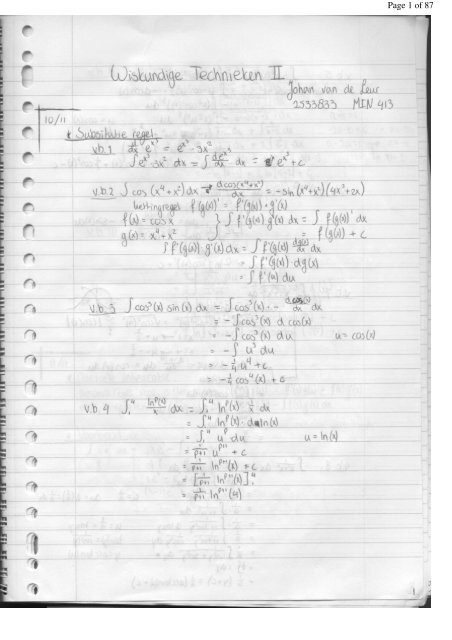 Page 1 of 87
Wiskundige Technieken II
Johan van de Leur
2533833 MIN 413
10/11
* Substitutie regel:
v.b. 1 d/dx e^x³ = e^x³ · 3x²
∫ e^x³ · 3x² dx = ∫ de^x³/dx dx = e^x³ + c
v.b. 2 ∫ cos (x⁴+x²) dx d cos(x⁴+x²)/dx = -sin (x⁴+x²)(4x³+2x)
kettingregel f(g(x))' = f'(g(x)) · g'(x)
f(x) = cos x } ∫ f'(g(x)) g'(x) dx = ∫ f(g(x))' dx
g(x) = x⁴+x² = f(g(x)) + c
∫ f'(g(x)) · g'(x) dx = ∫ f'(g(x)) dg(x)/dx dx
= ∫ f'(g(x)) · dg(x)
= ∫ f'(u) du
v.b. 3 ∫ cos³(x) sin(x) dx = ∫ cos³(x) · - dcos(x)/dx dx
= - ∫ cos³(x) d cos(x)
= - ∫ cos³(x) du u = cos(x)
= - ∫ u³ du
= - ¼ u⁴ + c
= - ¼ cos⁴(x) + c
v.b. 4 ∫₁⁴ ln^p(x)/x dx = ∫₁⁴ ln^p(x) · 1/x dx
= ∫₁⁴ ln^p(x) · d ln(x)
= ∫₁⁴ u^p du u = ln(x)
= 1/(p+1) u^(p+1) + c
= 1/(p+1) ln^(p+1)(x) + c
= [1/(p+1) ln^(p+1)(x)]₁⁴
= 1/(p+1) ln^(p+1)(4)
1